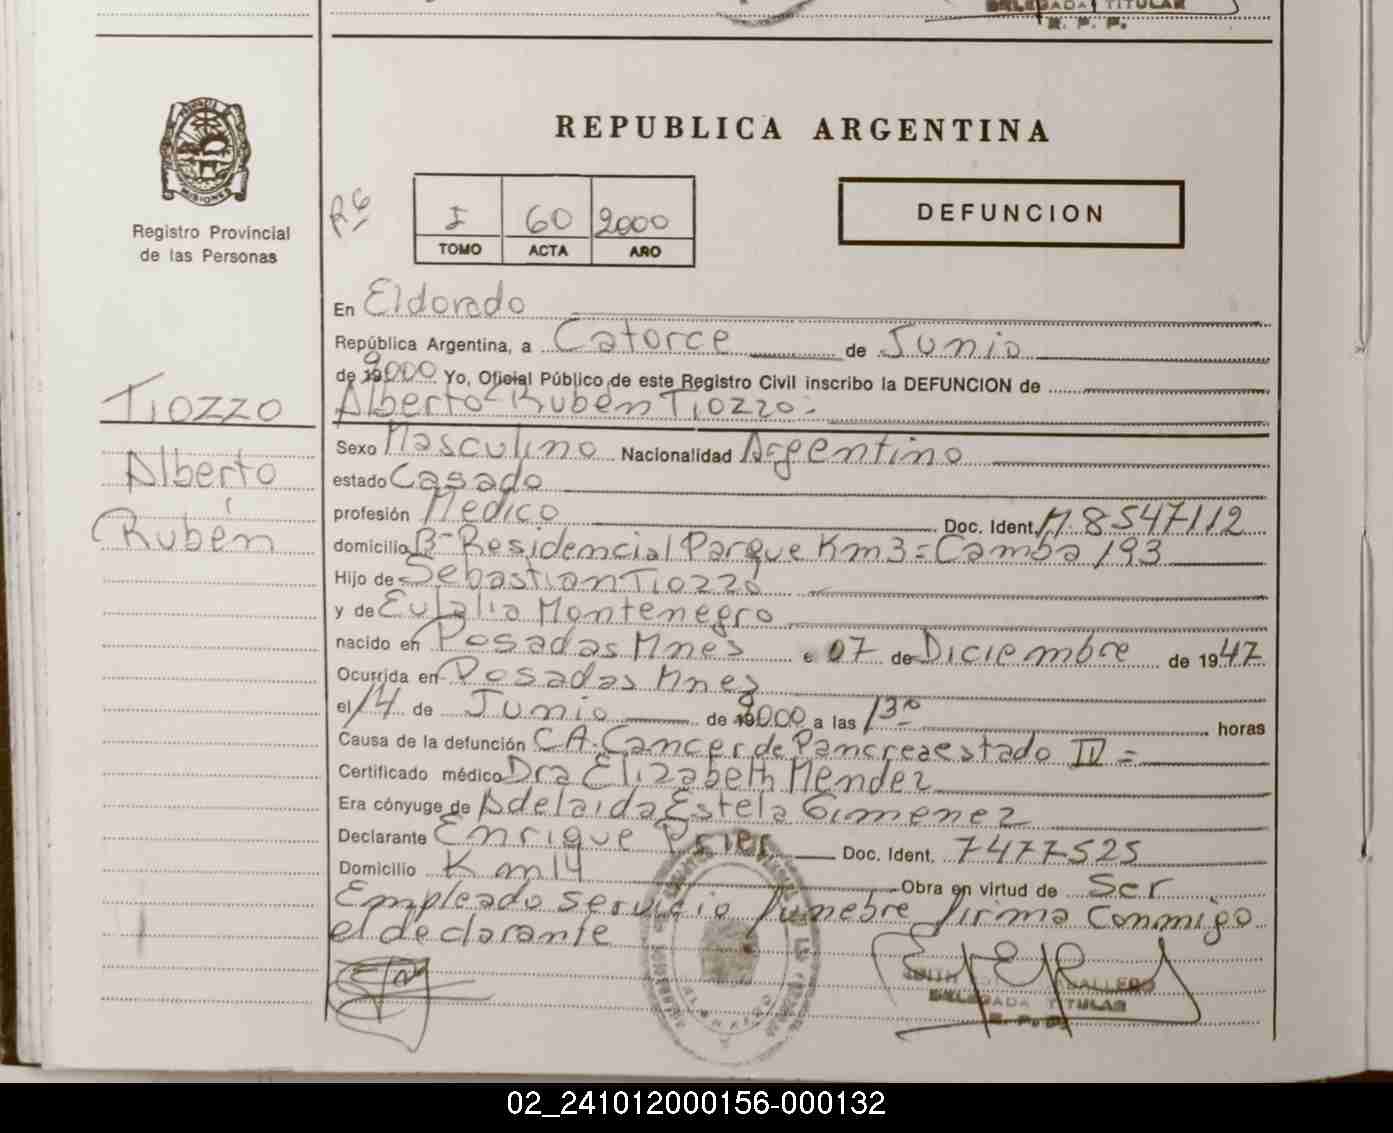 DELEGADA TITULAR
R. P. P.
PROVINCIA
MISIONES
Registro Provincial
de las Personas
REPUBLICA ARGENTINA
I 60 2000
TOMO ACTA AÑO
DEFUNCION
En Eldorado
República Argentina, a Catorce de Junio
de 2000 Yo, Oficial Público de este Registro Civil inscribo la DEFUNCION de
Alberto Ruben Tiozzo.-
Tiozzo
Alberto
Rubén
Sexo Masculino Nacionalidad Argentino
estado Casado
profesión Medico Doc. Ident. M. 8547112
domicilio B- Residencial Parque Km3= Camba 193
Hijo de Sebastian Tiozzo
y de Eulalia Montenegro
nacido en Posadas Mnes e 07 de Diciembre de 1947
Ocurrida en Posadas Mnes
el 14 de Junio de 2000 a las 13º horas
Causa de la defunción CA. Cancer de Pancreaestado IV =
Certificado médico Dra Elizabeth Mendez
Era cónyuge de Adelaida Estela Gimenez
Declarante Enrique Doc. Ident. 7477525
Domicilio Km14 Obra en virtud de Ser
Empleado servicio funebre firma conmigo
el declarante
DELEGADA TITULAR
R. P. P.
02_241012000156-000132